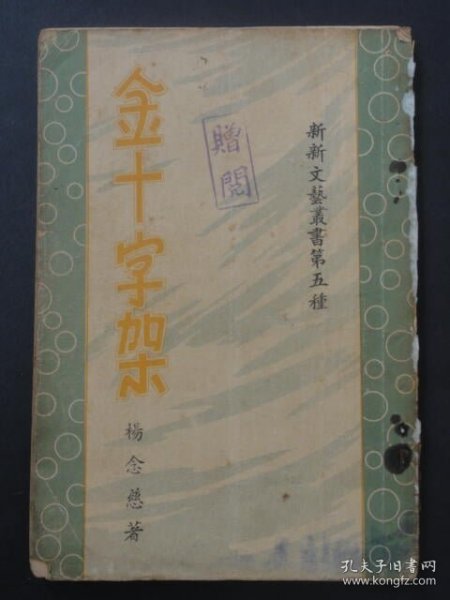 新新文藝叢書第五種
贈閱
金十字架
楊念慈著
孔夫子旧书网
www.kongfz.com